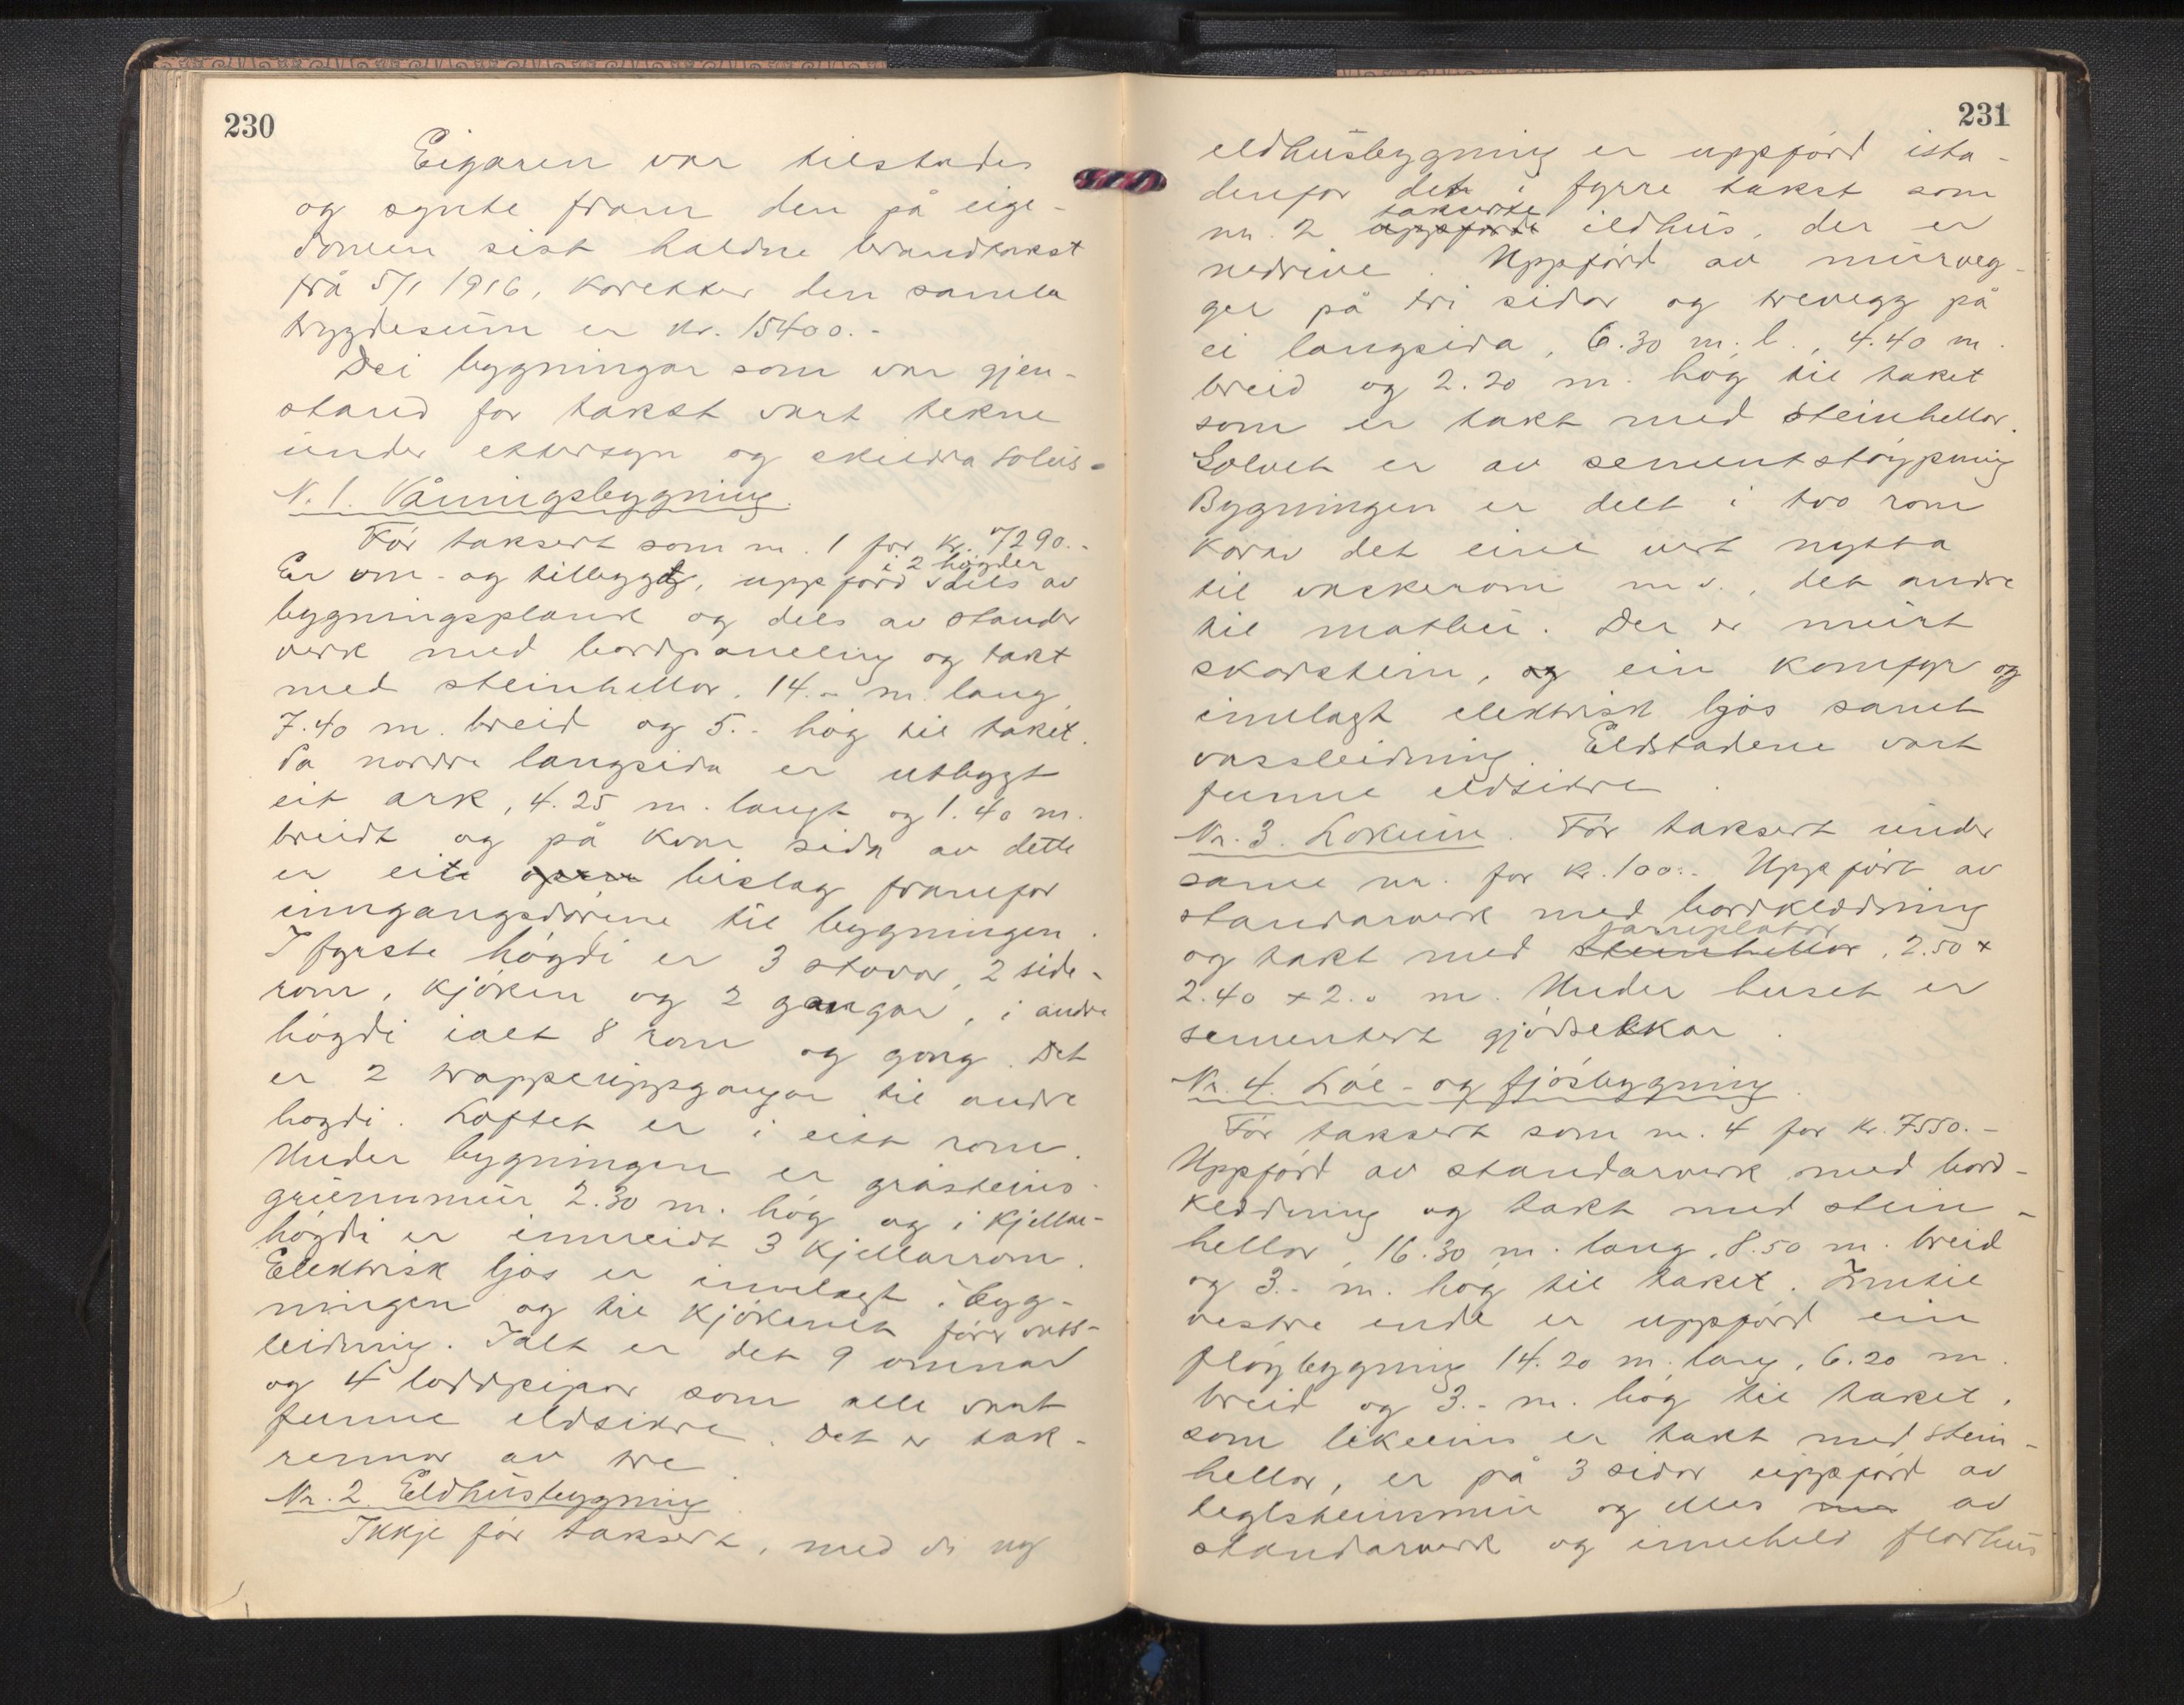 230
Eigaren var tilstades
og synte fram den på eige-
domen sist haldne brandtakst
frå 5/1 1916, koretter den samla
trygdesum er kr. 15400.-
Dei bygningar som var gjen-
stand for takst vart tekne
under ettersyn og skildra soleis.
N. 1. Våningsbygning.
Før taksert som nr. 1 for kr. 7290.-
i 2 høgder
Er om- og tilbygd, uppførd dels av
bygningsplank og dels av stander
verk med bordpaneling og takt
med steinhellor. 14.- m. lang,
7.40 m. breid og 5.- høg til taket.
På nordre langsida er utbygt
eit ark, 4.25 m. langt og 1.40 m.
breidt og på kvar sida av dette
er eit bislag framfor
inngangsdørene til bygningen.
I fyrste høgdi er 3 stovor, 2 side-
rom, kjøken og 2 gangar, i andre
høgdi ialt 8 rom og gong. Det
er 2 trappeuppgangar til andre
høgdi. Loftet er i eitt rom.
Under bygningen er gråsteins-
grunnmur 2.30 m. høg og i kjellar-
høgdi er innreidt 3 kjellarrom.
Elektrisk ljos er innlagt i byg-
ningen og til kjøkenet fører vass-
leidning. Ialt er det 9 omnar
og 4 loddpipor som alle vart
funne eldsikre. Det er tak-
rennor av tre.
Nr. 2. Eldhusbygning
Ikkje før taksert, med di ny
231
eldhusbygning er uppførd ista-
denfor det i fyrre takst som
takserte
nr. 2 uppførde ildhus, der er
nedrive. Uppførd av murveg-
ger på tri sidor og trevegg på
ei langsida, 6.30 m. l., 4.40 m.
breid og 2.20 m. høg til taket
som er takt med steinhellor.
Golvet er av sementstøypning
Bygningen er delt i two rom
korav det eine vert nytta
til vaskerom m.v., det andre
til matbu. Der er murt
skorstein, og ein komfyr og
innlagt elektrisk ljos samt
vassleidning. Eldstadene vart
funne eldsikre.
Nr. 3. Lokum. Før taksert under
same nr. for kr. 100.- Uppført av
standarverk med bordklædning
jarnplator
og takt med steinhellor, 2.50 x
2.40 x 2.0 m. Under huset er
sementert gjødselkar.
Nr. 4. Løe- og fjøsbygning.
Før taksert som nr. 4 for kr. 7550.-
Uppførd av standarverk med bord-
kledning og takt med stein-
hellor, 16.30 m. lang, 8.50 m. breid
og 3.- m. høg til taket. Inntil
vestre ende er uppførd ein
fløybygning 14.20 m. lang, 6.20 m.
breid og 3.- m. høg til taket,
som likeeins er takt med stein-
hellor, er på 3 sidor uppførd av
teglsteinmur og elles av
standarverk og inneheld florhus